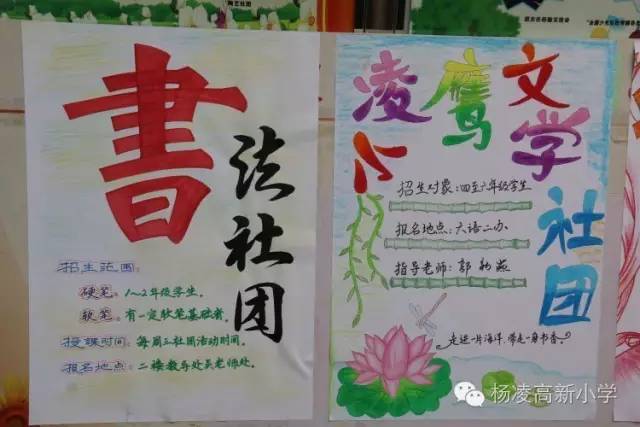 書
法社团
招生范围:
硬笔:1~2年级学生。
软笔:有一定软笔基础者。
授课时间:每周三社团活动时间。
报名地点:二楼教导处吴老师处。
小凌鹰文学
社团
招生对象:四至六年级学生
报名地点:六语二办
指导老师:郭
走进一片海洋,带走一身书香。
杨凌高新小学